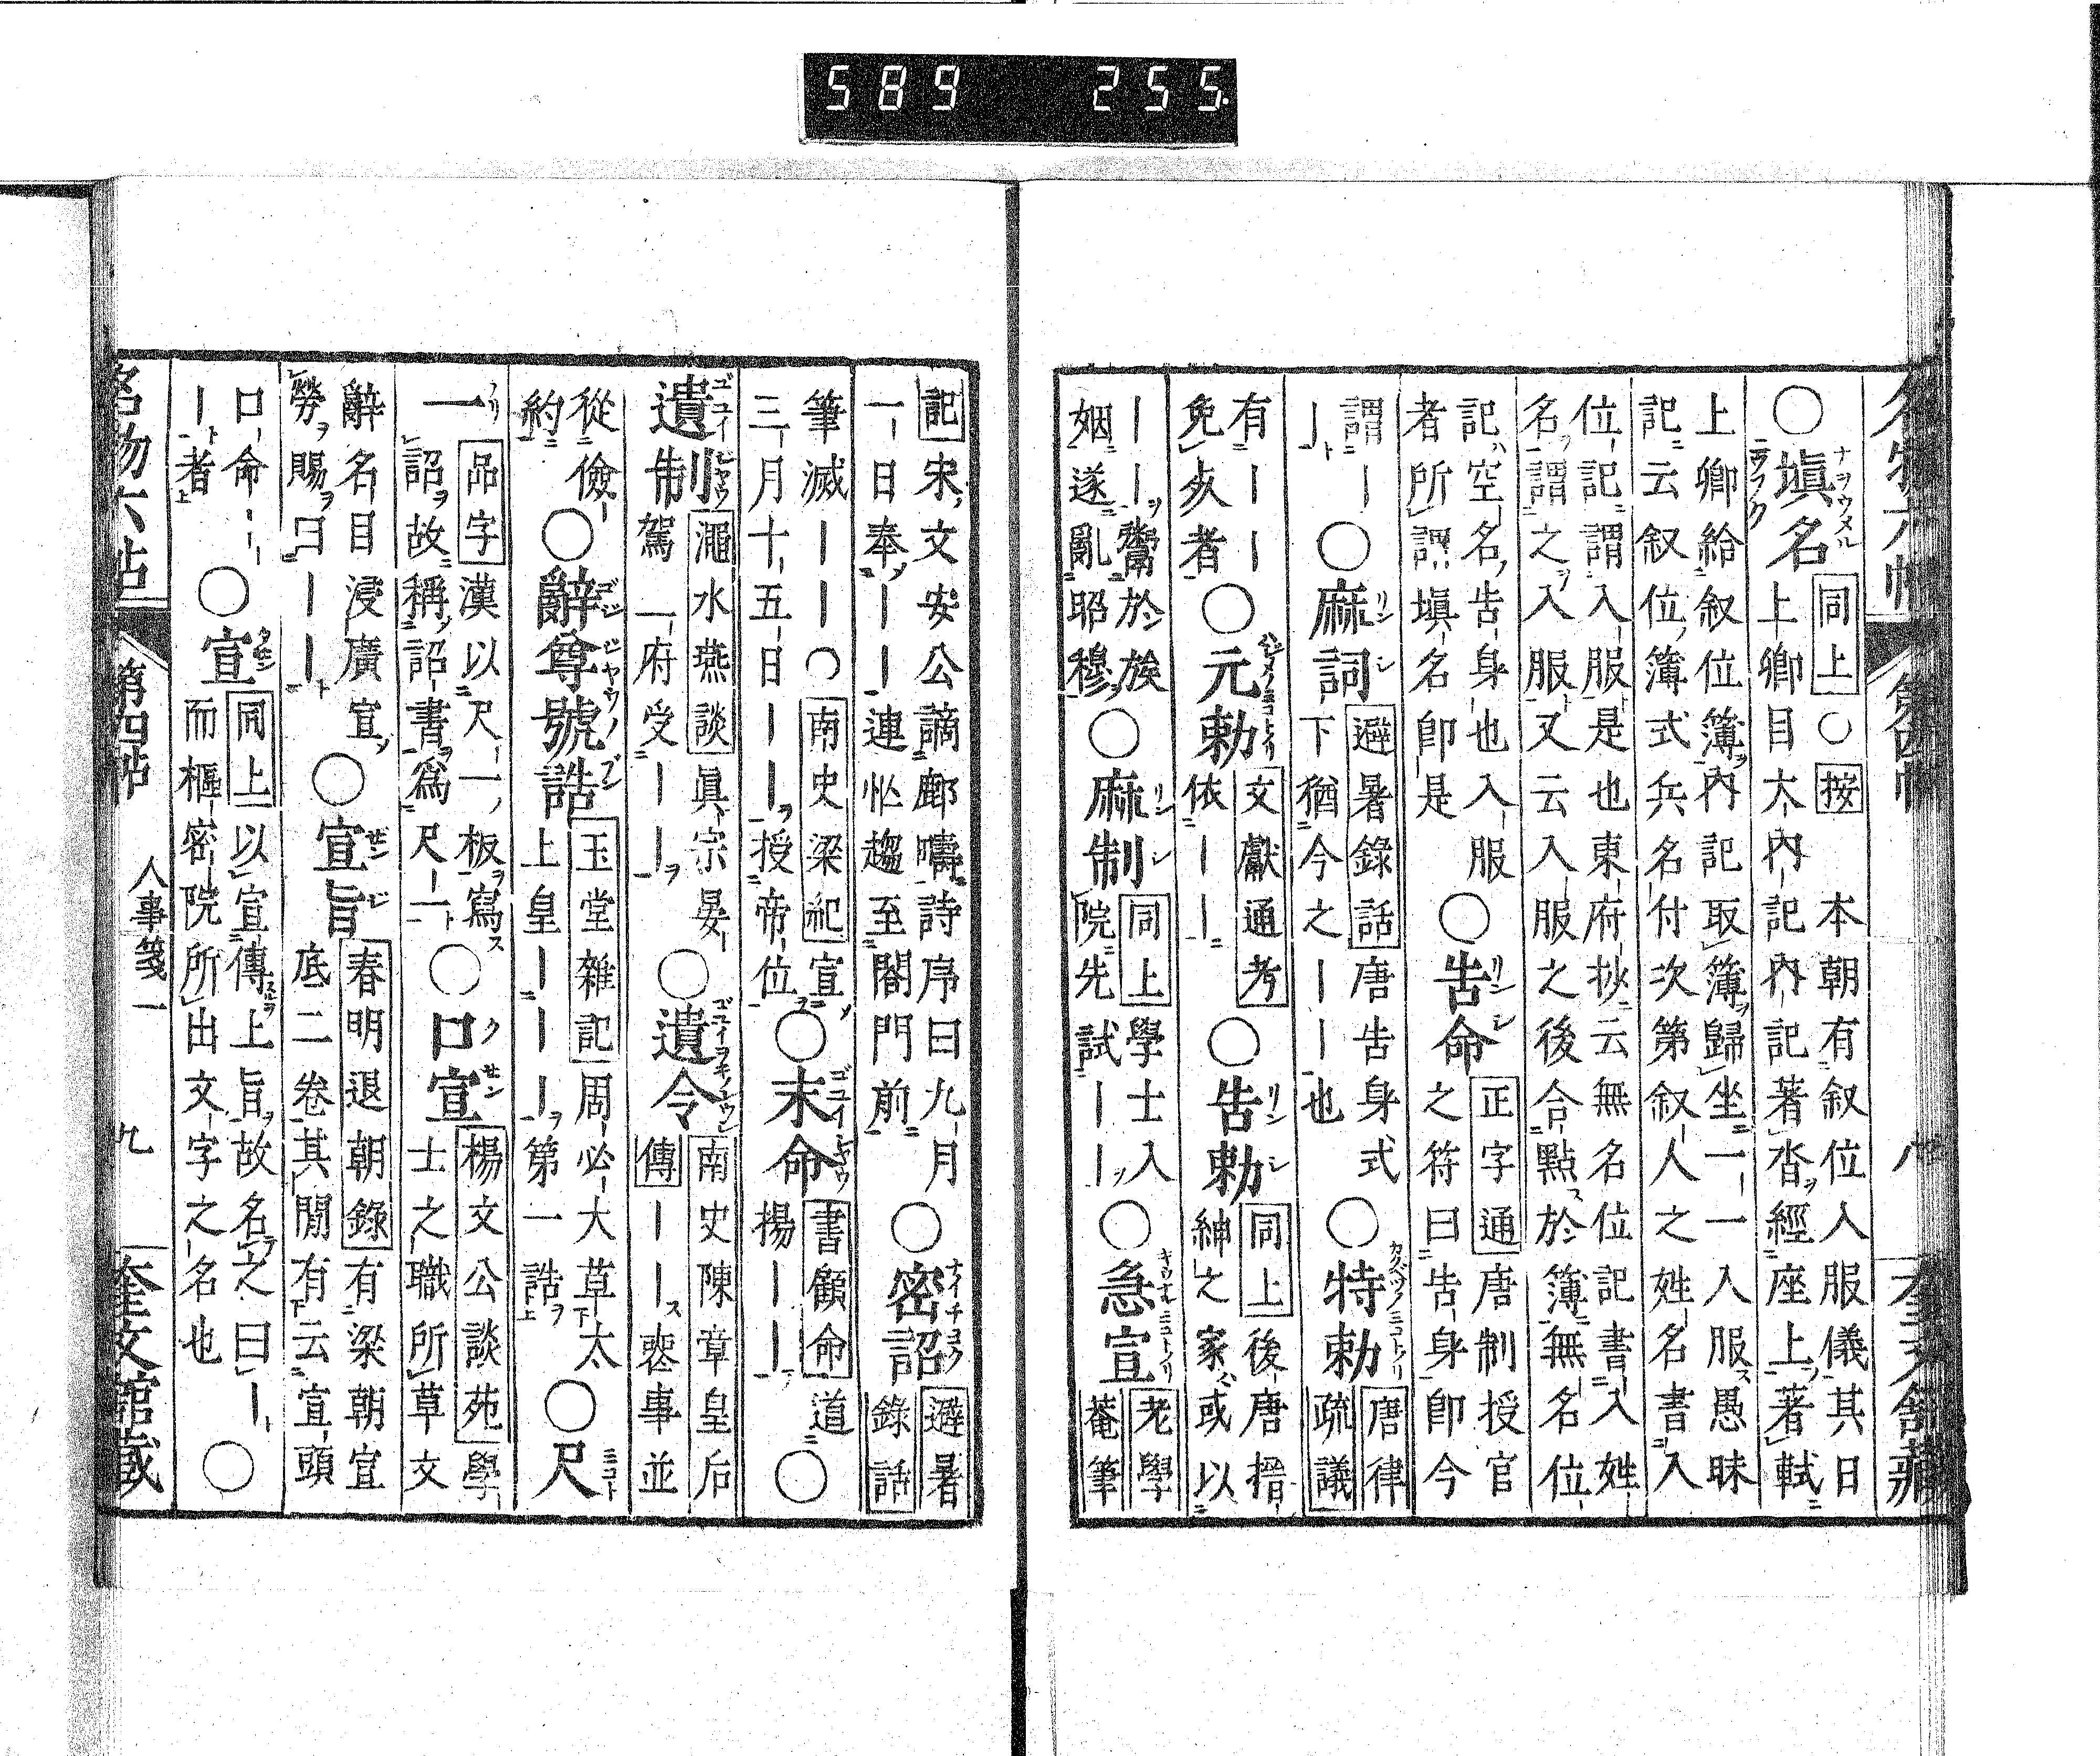 名物六帖 第四帖 八 奎文館藏
○填名 同上○按 本朝有叙位入服儀其日
上卿目大内記内記著沓經座上著軾
上卿給叙位簿内記取簿歸坐一一入服愚昧
記云叙位簿式兵名付次第叙人之姓名書入
位記謂入服是也東府抄云無名位記書入姓
名謂之入服又云入服之後合點於簿無名位
記空名告身也入服
者所謂填名即是
○告命 正字通唐制授官
之符曰告身即今
謂｜
｜｜
○麻詞 避暑錄話唐告身式
下猶今之｜｜也
○特勅 唐律
疏議
有｜｜｜
免者
○元勅 文獻通考
依｜｜
○告勅 同上後唐搢
紳之家或以
｜｜｜鬻於族
姻遂亂昭穆
○麻制 同上學士入
院先試｜｜
○急宣 老學
菴筆
記宋文安公謫鄜疇詩序曰九月
一日奉｜｜連忙趨至閤門前
○密詔 避暑
錄話
筆滅｜｜○南史梁紀宣
三月十五日｜｜授帝位
○末命 書顧命道
揚｜｜
○遺制 澠水燕談眞宗晏
駕一府受｜｜
○遺令 南史陳章皇后
傳｜｜喪事並
從儉
約
○辭尊號誥 玉堂雜記周必大草太
上皇｜｜｜第一誥
○尺一 品字漢以尺一板寫
詔故稱詔書爲尺一
○口宣 楊文公談苑學
士之職所草文
辭名目浸廣宣
勞賜曰｜｜
○宣旨 春明退朝錄有梁朝宣
底二卷其閒有云宣頭
口命
｜者
○宣 同上以宣傳上旨故名之曰｜
而樞密院所出文字之名也
○
名物六帖 第四帖 人事箋一 九 奎文館藏
589 255